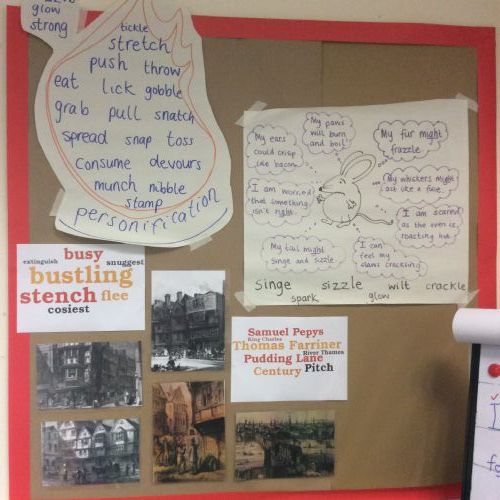 glow
strong
tickle
stretch
push throw
eat lick gobble
grab pull snatch
spread snap toss
consume devours
munch nibble
stamp
personification
My paws
will burn
and boil
My ears
could crisp
like bacon
My fur might
frazzle
My whiskers might
act like a fuse
I am worried
that something
isn't right
I am scared
as the oven is
roasting hot
My tail might
singe and sizzle
I can
feel my
claws crackling
Singe sizzle wilt crackle
spark glow
busy
extinguish snuggest
bustling
stench flee
cosiest
Samuel Pepys
King Charles
Thomas Farriner
River Thames
Pudding Lane
Century Pitch